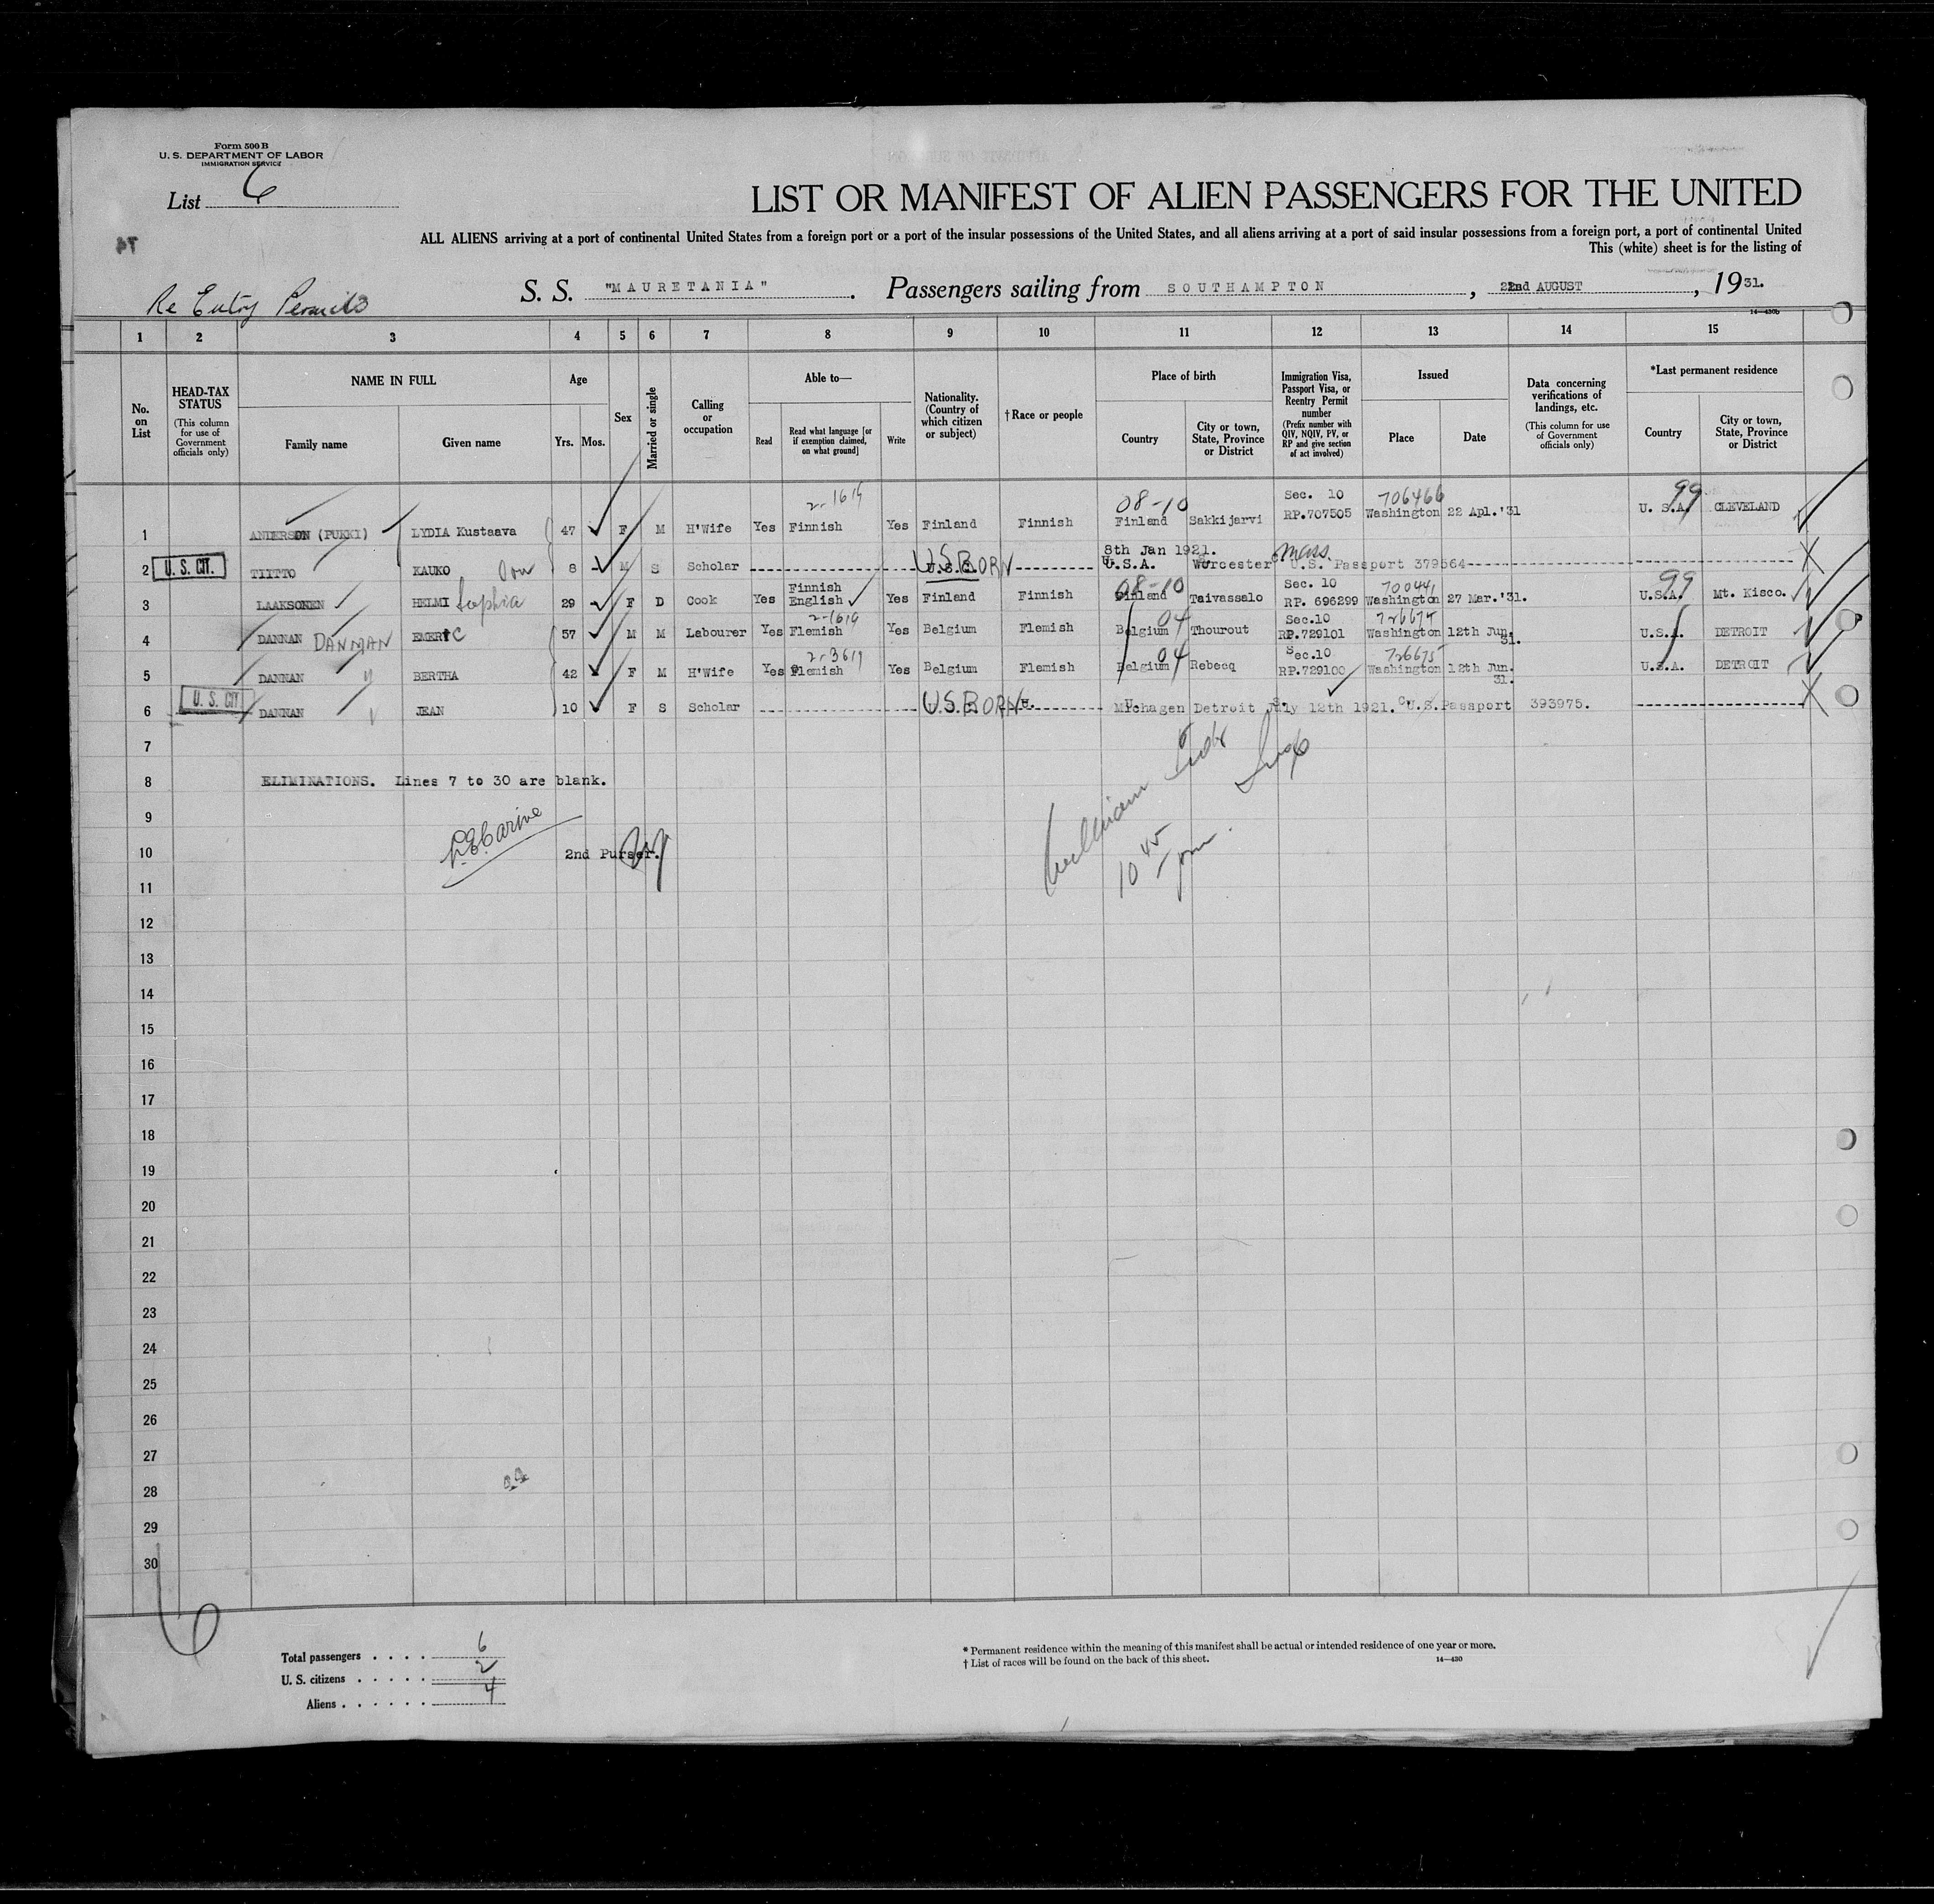 Form 500 B
U. S. DEPARTMENT OF LABOR
IMMIGRATION SERVICE
List 6
LIST OR MANIFEST OF ALIEN PASSENGERS FOR THE UNITED
ALL ALIENS arriving at a port of continental United States from a foreign port or a port of the insular possessions of the United States, and all aliens arriving at a port of said insular possessions from a foreign port, a port of continental United
This (white) sheet is for the listing of
Re Entry Permits
S. S. "MAURETANIA". Passengers sailing from SOUTHAMPTON, 22nd AUGUST, 1931.
14—430b
1 2 3 4 5 6 7 8 9 10 11 12 13 14 15
No. on List
HEAD-TAX STATUS (This column for use of Government officials only)
NAME IN FULL
Family name
Given name
Age
Yrs. Mos.
Sex
Married or single
Calling or occupation
Able to—
Read
Read what language [or if exemption claimed, on what ground]
Write
Nationality. (Country of which citizen or subject)
†Race or people
Place of birth
Country
City or town, State, Province or District
Immigration Visa, Passport Visa, or Reentry Permit number (Prefix number with QIV, NQIV, PV, or RP and give section of act involved)
Issued
Place
Date
Data concerning verifications of landings, etc. (This column for use of Government officials only)
*Last permanent residence
Country
City or town, State, Province or District
2-1619 08-10 Sec. 10 706466 99
1 ANDERSON (PUKKI) LYDIA Kustaava 47 F M H'Wife Yes Finnish Yes Finland Finnish Finland Sakkijarvi RP.707505 Washington 22 Apl.'31 U. S.A. CLEVELAND
8th Jan 1921. Mass.
2 U. S. CIT. TIITTO KAUKO 8 M S Scholar U.S. BORN U.S.A. Worcester U.S. Passport 379564
Finnish 08-10 Sec. 10 700441 99
3 LAAKSONEN HELMI Sophia 29 F D Cook Yes English Yes Finland Finnish Finland Taivassalo RP. 696299 Washington 27 Mar.'31. U.S.A. Mt. Kisco.
2-1619 04 Sec.10 726674
4 DANNAN DANMAN EMERIC 57 M M Labourer Yes Flemish Yes Belgium Flemish Belgium Thourout RP.729101 Washington 12th Jun. 31. U.S.A. DETROIT
2-3619 04 Sec.10 726675
5 DANNAN " BERTHA 42 F M H'Wife Yes Flemish Yes Belgium Flemish Belgium Rebecq RP.729100 Washington 12th Jun. 31. U.S.A. DETROIT
6 U. S. CIT. DANNAN JEAN 10 F S Scholar U.S. BORN Michagen Detroit July 12th 1921. U.S. Passport 393975.
7
8 ELIMINATIONS. Lines 7 to 30 are blank.
9
10 2nd Purser.
10 45 pm
11
12
13
14
15
16
17
18
19
20
21
22
23
24
25
26
27
28
29
30
6
Total passengers 6
U. S. citizens 2
Aliens 4
* Permanent residence within the meaning of this manifest shall be actual or intended residence of one year or more.
† List of races will be found on the back of this sheet.
14—430